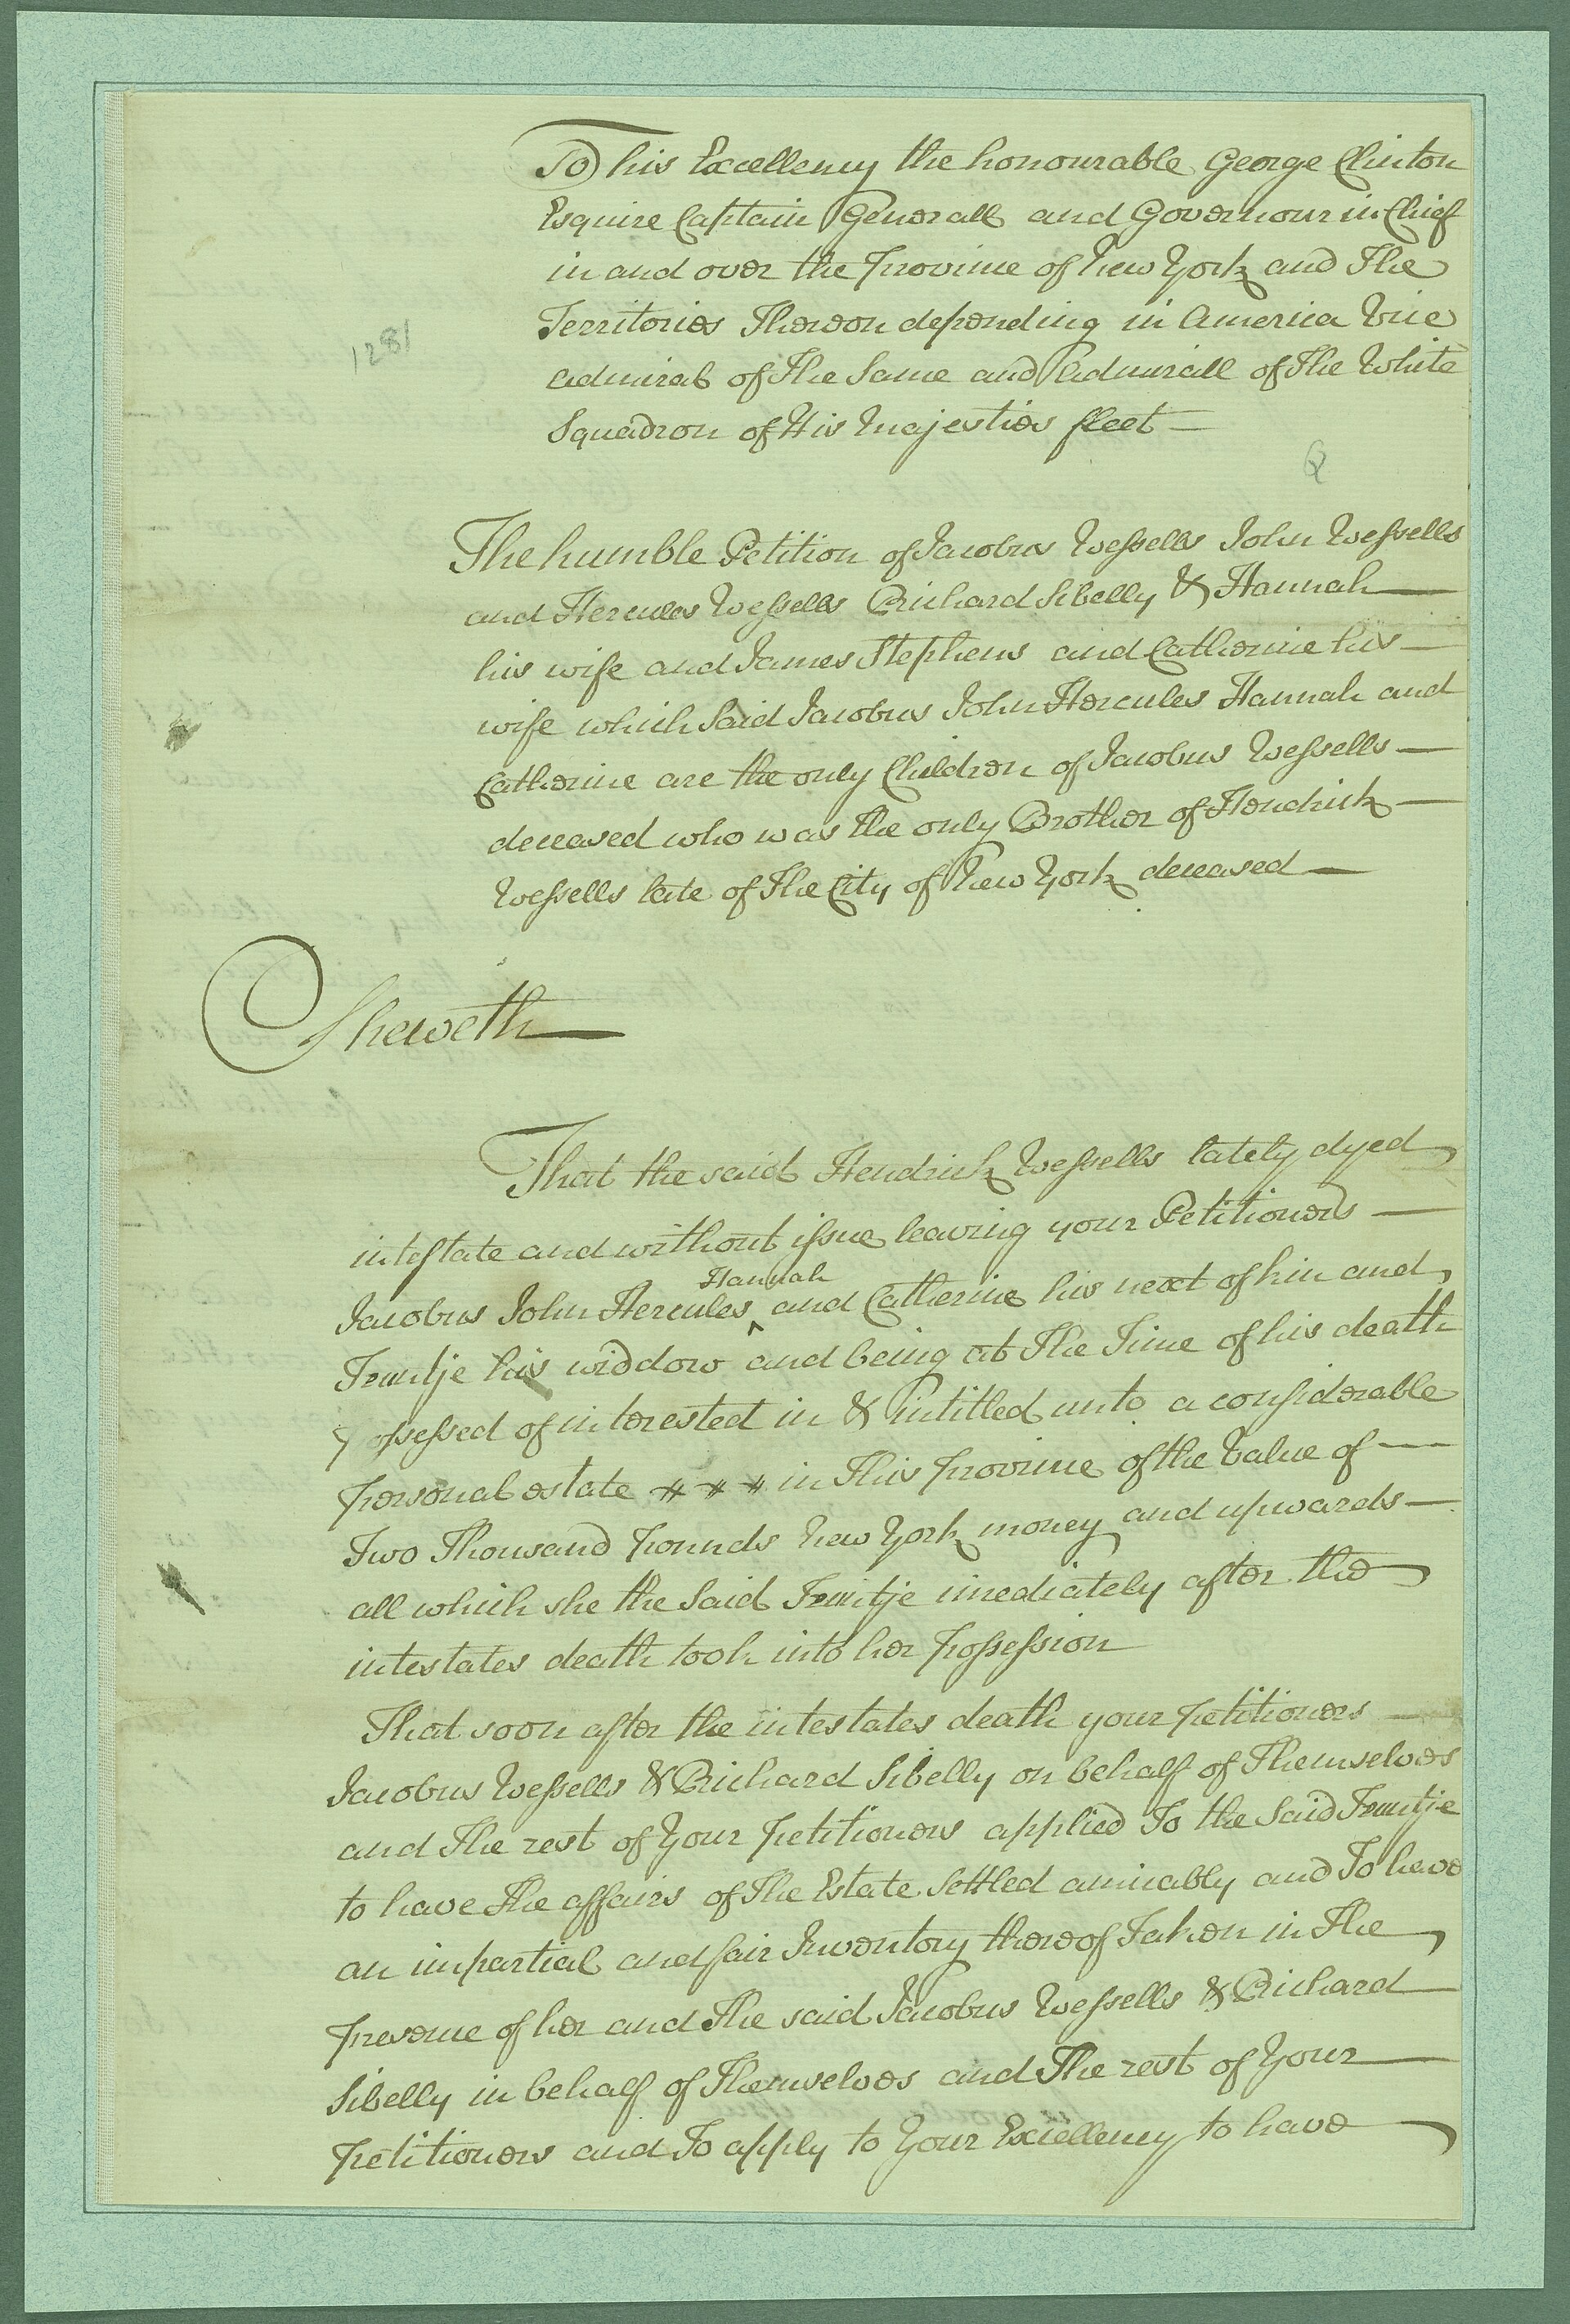 To his Excellency the honourable George Clinton
Esquire Captain Generall and Governour in Chief
in and over the Province of New York and The
Territories Thereon depending in America Vice
1281
Admiral of The Same and Admirall of The White
Squadron of His Majesties fleet —
The humble Petition of Jacobus Wessells John Wessells
and Hercules Wessells Richard Sibelly & Hannah —
his wife and James Stephens and Catherine his —
wife which Said Jacobus John Hercules Hannah and
Catherine are the only Children of Jacobus Wessells —
deceased who was the only Brother of Hendrick —
Wessells late of The City of New York deceased —
Sheweth —
That the said Hendrick Wessells lately dyed
intestate and without issue leaving your Petitioners —
Jacobus John Hercules ^ Hannah and Catherine his next of kin and
his widdow and being at The Time of his death
possessed of interested in & intitled unto a considerable
personal estate in This Province of the Value of —
Two Thousand pounds New York money and upwards —
all which she the Said imediately after the
intestates death took into her possession
That soon after the intestates death your petitioners —
Jacobus Wessells & Richard Sibelly on behalf of Themselves
and The rest of Your petitioners applied To the Said
to have The affairs of The Estate Settled amicably and To have
an impartial and fair Inventory thereof Taken in The
presence of her and The said Jacobus Wessells & Richard
Sibelly in behalf of Themselves and The rest of Your —
petitioners and To apply to Your Excellency to have